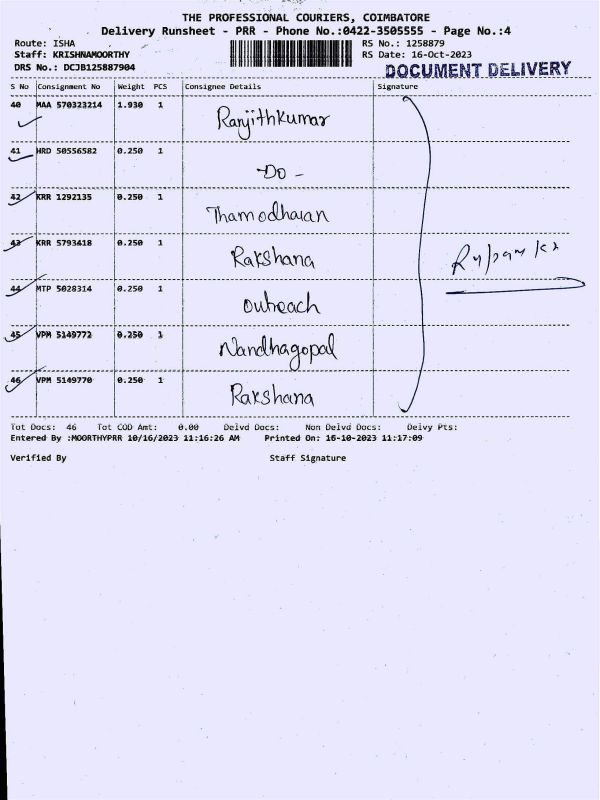 THE PROFESSIONAL COURIERS, COIMBATORE
Delivery Runsheet - PRR - Phone No.:0422-3505555 - Page No.:4
Route: ISHA RS No.: 1258879
Staff: KRISHNAMOORTHY RS Date: 16-Oct-2023
DRS No.: DCJB125887904 DOCUMENT DELIVERY
S No Consignment No Weight PCS Consignee Details Signature
40 MAA 570323214 1.930 1 Ranjithkumar
41 HRD 50556582 0.250 1 -Do-
42 KRR 1292135 0.250 1 Thamodharan
43 KRR 5793418 0.250 1 Rakshana
44 MTP 5028314 0.250 1 Outreach
45 VPM 5149772 0.250 1 Nandhagopal
46 VPM 5149770 0.250 1 Rakshana
Tot Docs: 46 Tot COD Amt: 0.00 Delvd Docs: Non Delvd Docs: Delvy Pts:
Entered By :MOORTHYPRR 10/16/2023 11:16:26 AM Printed On: 16-10-2023 11:17:09
Verified By Staff Signature